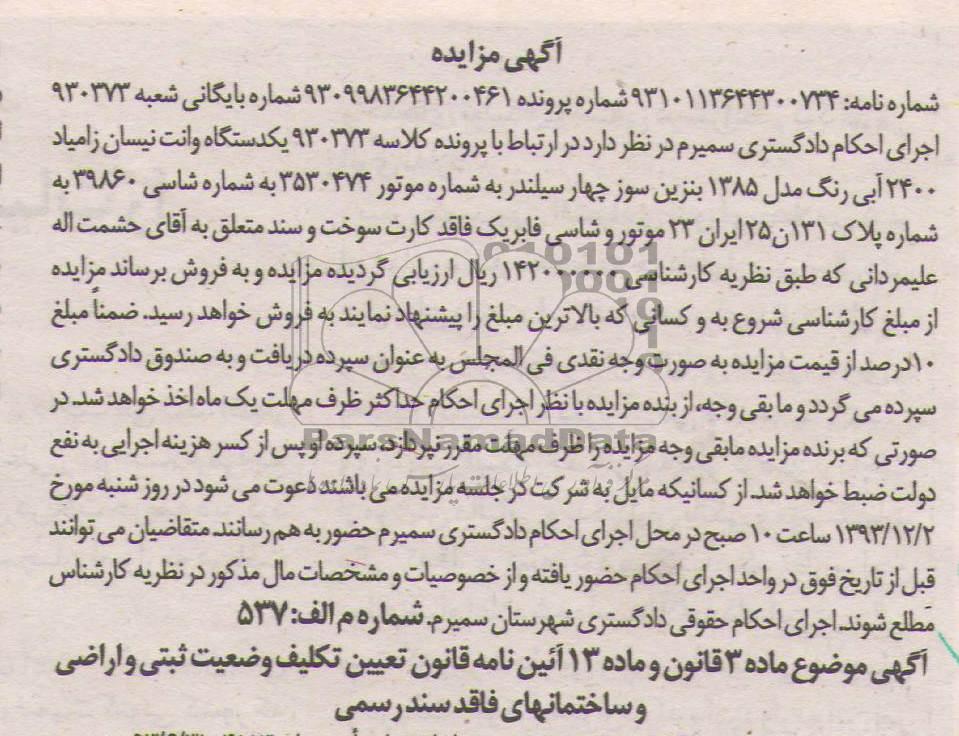 آگهی مزایده
شماره نامه: ۹۳۱۰۱۱۳۶۴۴۳۰۰۷۳۴ شماره پرونده ۹۳۰۹۹۸۳۶۴۴۲۰۰۴۶۱ شماره بایگانی شعبه ۹۳۰۳۷۳
اجرای احکام دادگستری سمیرم در نظر دارد در ارتباط با پرونده کلاسه ۹۳۰۳۷۳ یکدستگاه وانت نیسان زامیاد
۲۴۰۰ آبی رنگ مدل ۱۳۸۵ بنزین سوز چهار سیلندر به شماره موتور ۳۵۳۰۴۷۴ به شماره شاسی ۳۹۸۶۰ به
شماره پلاک ۱۳۱ن۲۵ ایران ۲۳ موتور و شاسی فابریک فاقد کارت سوخت و سند متعلق به آقای حشمت اله
علیمردانی که طبق نظریه کارشناسی ۱۴۲۰۰۰۰۰۰ ریال ارزیابی گردیده مزایده و به فروش برساند مزایده
از مبلغ کارشناسی شروع به و کسانی که بالاترین مبلغ را پیشنهاد نمایند به فروش خواهد رسید. ضمناً مبلغ
۱۰درصد از قیمت مزایده به صورت وجه نقدی فی المجلس به عنوان سپرده دریافت و به صندوق دادگستری
سپرده می گردد و ما بقی وجه، از بنده مزایده با نظر اجرای احکام حداکثر ظرف مهلت یک ماه اخذ خواهد شد. در
صورتی که برنده مزایده مابقی وجه مزایده را ظرف مهلت مقرر نپردازد، سپرده او پس از کسر هزینه اجرایی به نفع
دولت ضبط خواهد شد. از کسانیکه مایل به شرکت در جلسه مزایده می باشند دعوت می شود در روز شنبه مورخ
۱۳۹۳/۱۲/۲ ساعت ۱۰ صبح در محل اجرای احکام دادگستری سمیرم حضور به هم رسانند. متقاضیان می توانند
قبل از تاریخ فوق در واحد اجرای احکام حضور یافته و از خصوصیات و مشخصات مال مذکور در نظریه کارشناس
مطلع شوند. اجرای احکام حقوقی دادگستری شهرستان سمیرم. شماره م الف: ۵۳۷
آگهی موضوع ماده ۳ قانون و ماده ۱۳ آئین نامه قانون تعیین تکلیف وضعیت ثبتی و اراضی
و ساختمانهای فاقد سند رسمی
ParsNamadData